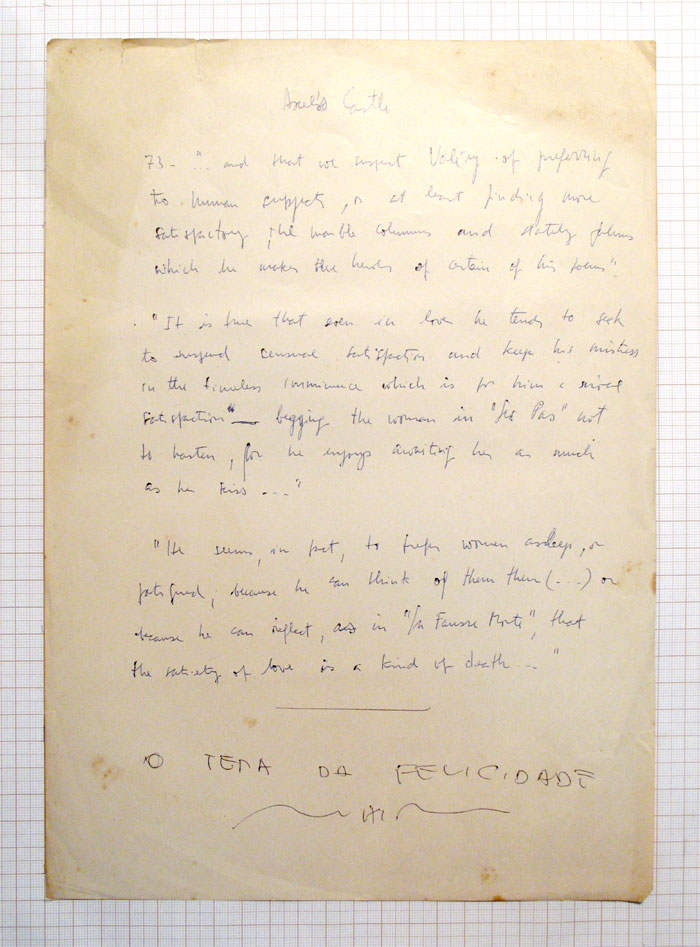 Axel's Castle
73 - ".. and that we suspect Valéry of preferring
to human suppets, or at least finding more
satisfactory, the marble columns and stately palms
which he makes the heroes of certain of his poems".
"It is true that even in love he tends to seek
to suspend censual satisfaction and keep his mistress
in the timeless imminence which is for him a
satisfaction" — begging the woman in "Les Pas" not
to hasten, for he enjoys awaiting her as much
as her kiss ..."
"He seems, in fact, to prefer women asleep, or
fatigued, because he can think of them then (...) or
because he can reflect, as in "La Fausse Morte", that
the satiety of love is a kind of death ..."
O TEMA DA FELICIDADE